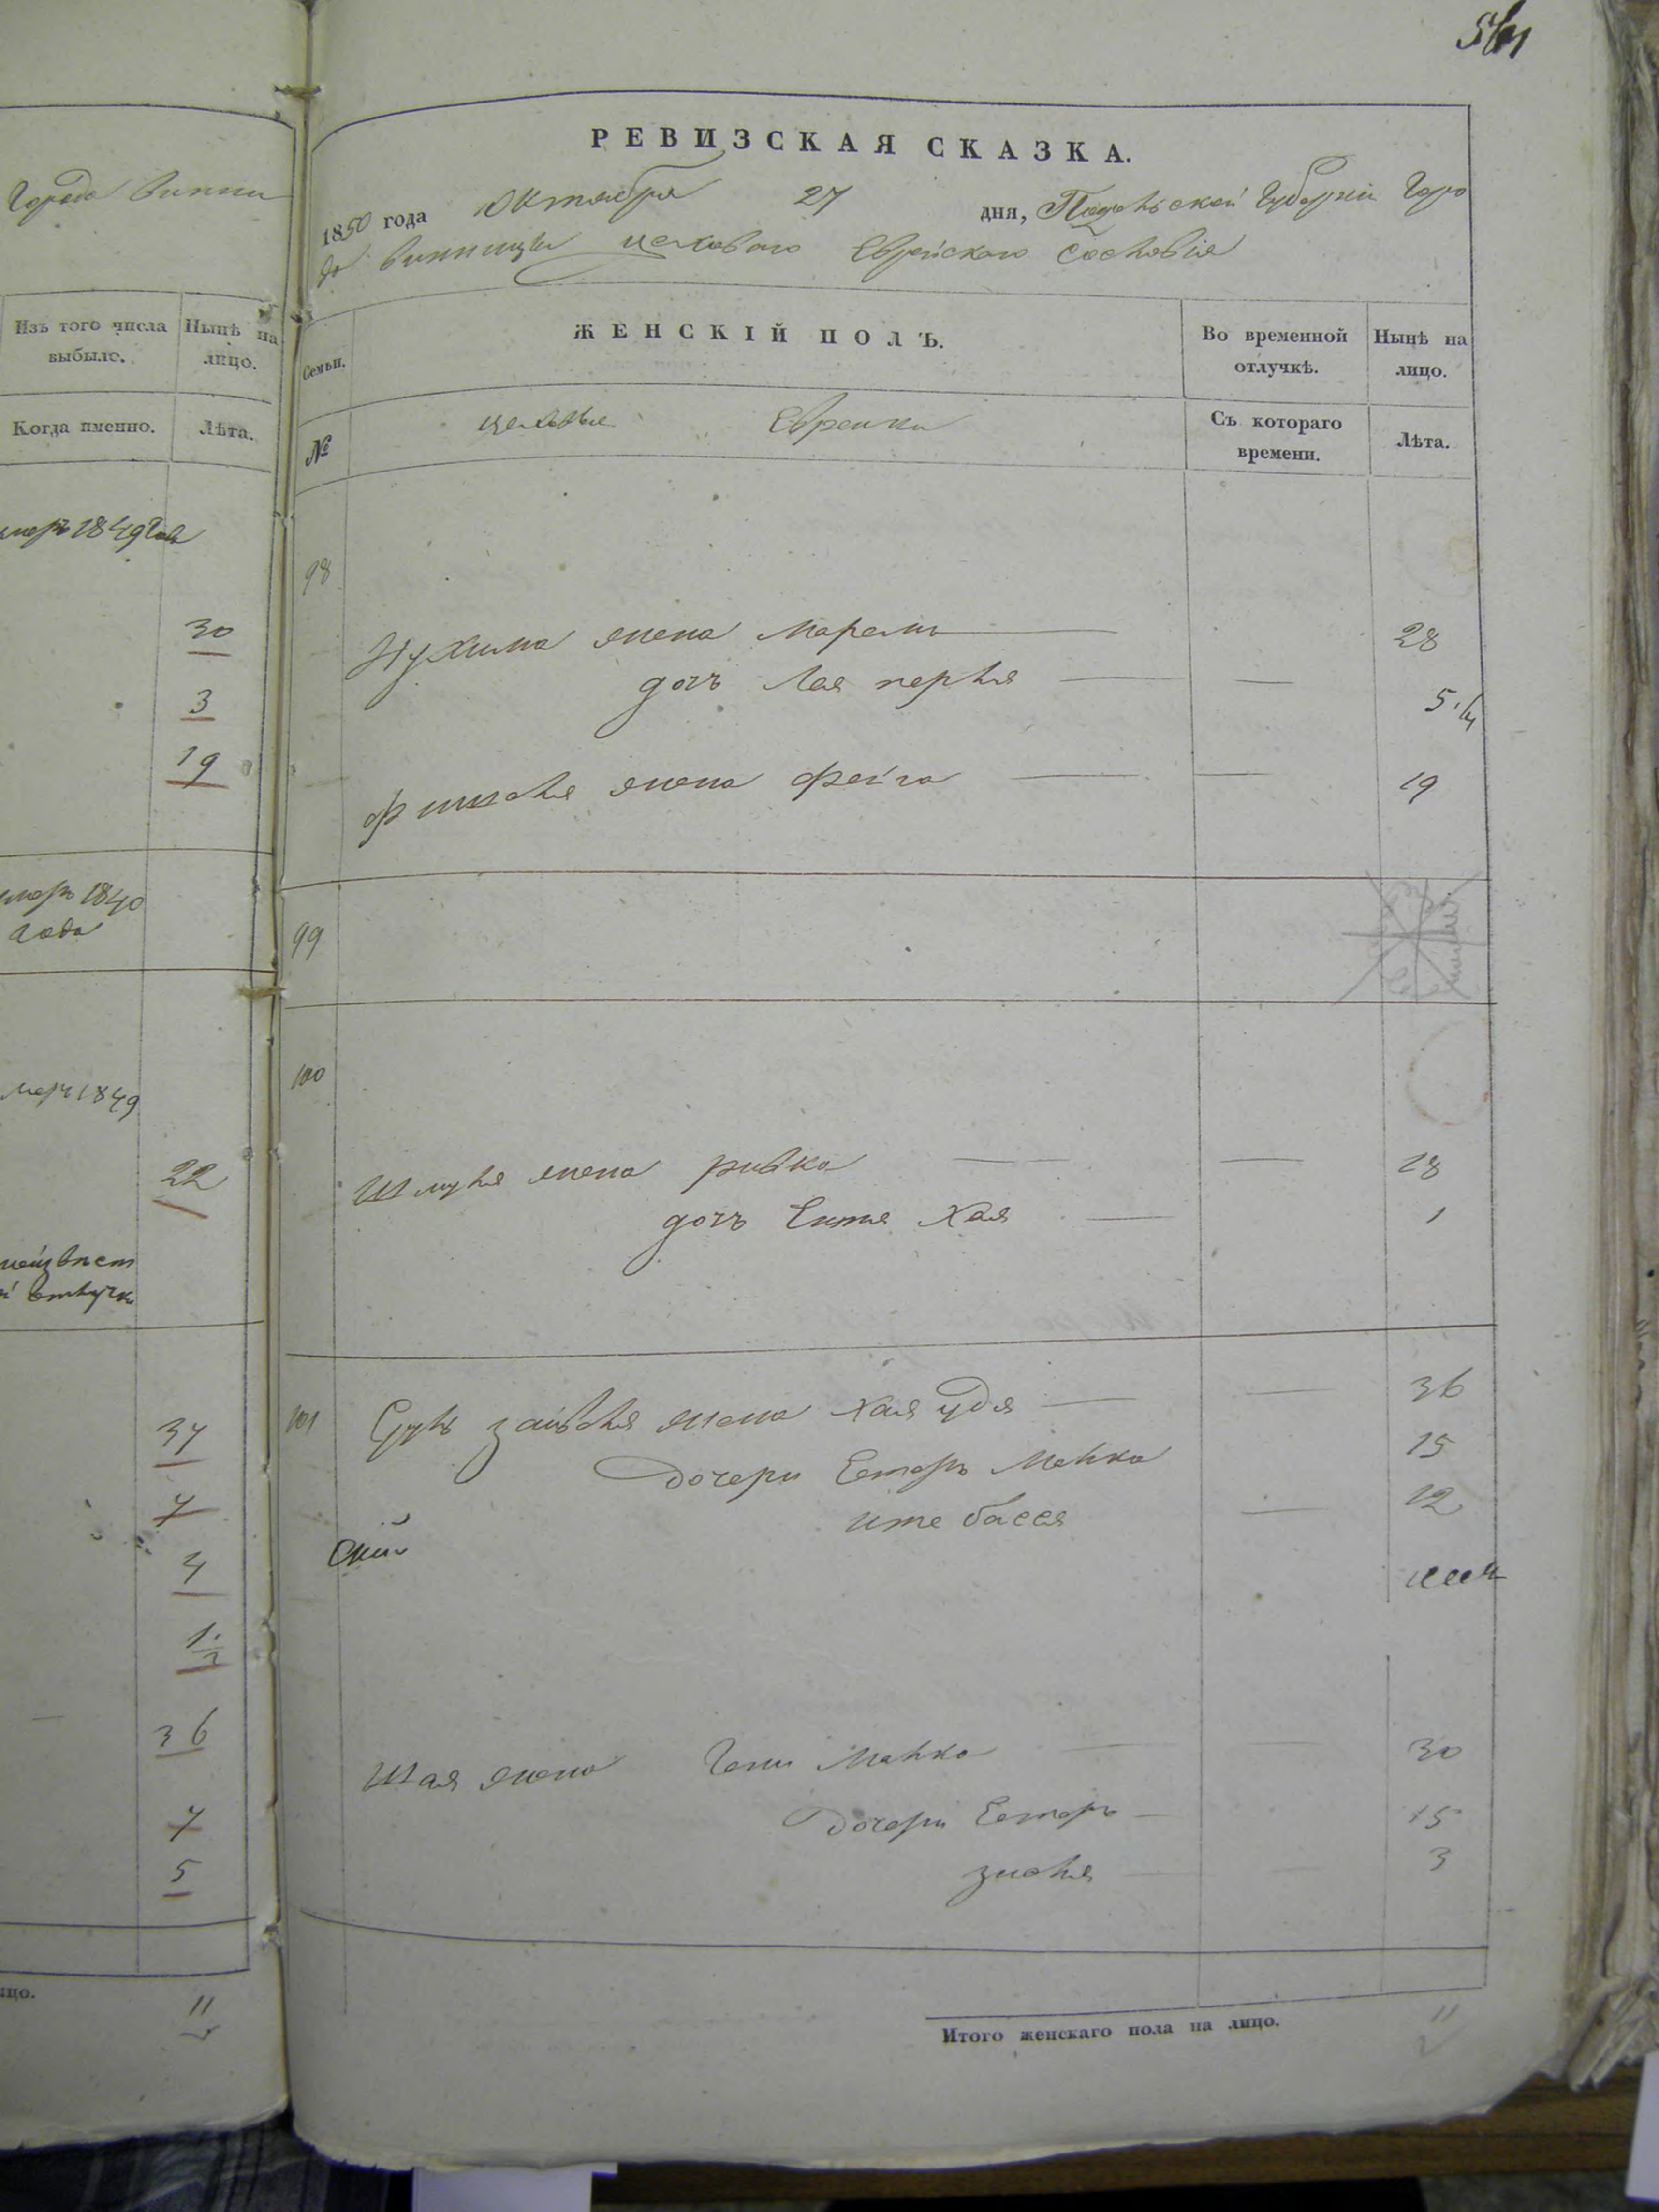 Города Винни
Изъ того числа выбыло.
Нынѣ на лицо.
Когда именно.
Лѣта.
меръ 1849 года
30
3
19
меръ 1840
года
меръ 1849
22
неизвѣст
й отлучк
37
7
4
1 1/2
36
7
5
ицо.
11
РЕВИЗСКАЯ СКАЗКА.
1850 года Октября 27 дня, Подольской Губерніи Горо
да Винницы цеховаго Еврейскаго Сословія
Семьи.
ЖЕНСКІЙ ПОЛЪ.
Во временной отлучкѣ.
Нынѣ на лицо.
№
цеховые Евреики
Съ котораго времени.
Лѣта.
98
Нухима жена Марьям 28
дочь Лая перля 5 1/4
Фишеля жена Фейга 19
99
100
Шмуля жена Ривка 18
дочь Ента Хая 1
101
Срул зайвеля жена Хая удя 36
Дочери Естеръ Малка 15
ите бася 12
Скій
Шая жена Гени Малка 30
Дочери Естеръ 15
зисля 3
Итого женскаго пола на лицо. 11